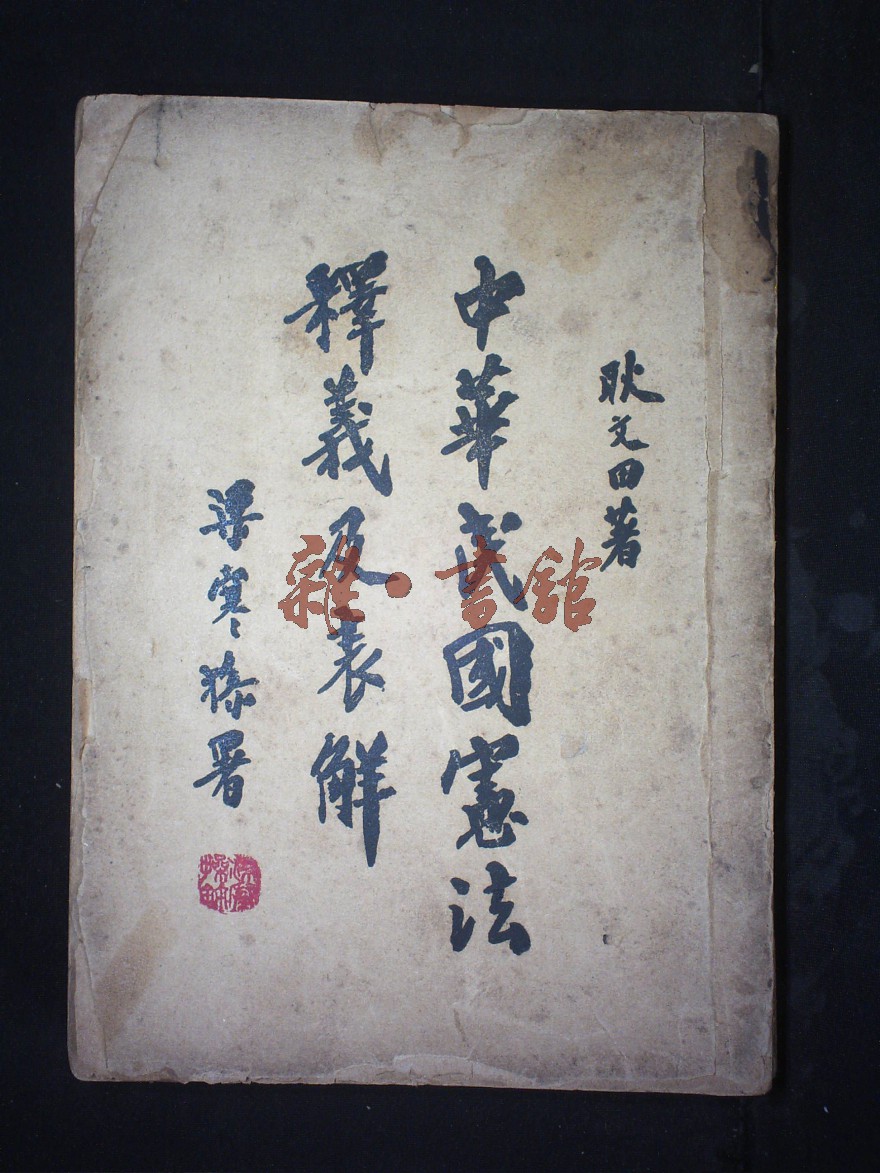 耿文田著
中華民國憲法
釋義及表解
梁寒操署
雜·書館